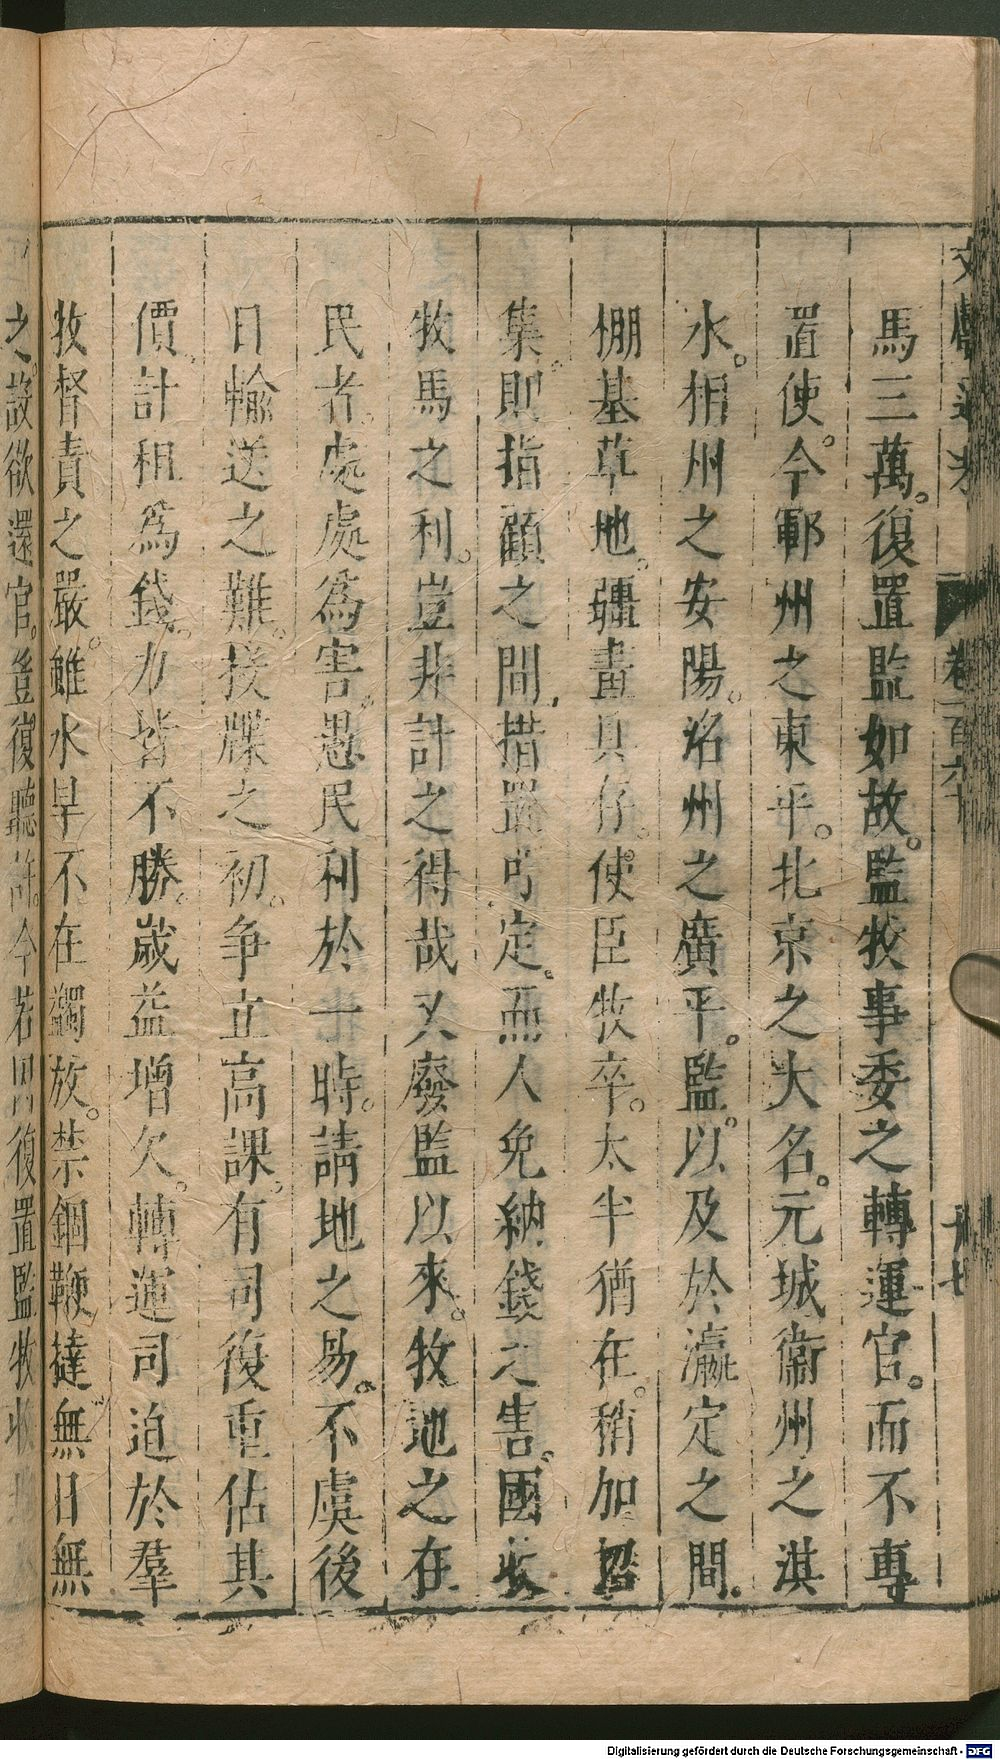 文獻通考 卷一百六十
馬三萬。復置監如故。監牧事委之轉運官。而不專
置使。今鄆州之東平。北京之大名。元城衛州之淇
水。相州之安陽。洺州之廣平。監。以及於瀛定之間。
棚基草地。疆畫具存。使臣牧卒。太半猶在。稍加招
集。則指顧之間。措置可定。而人免納錢之害。國收
牧馬之利。豈非計之得哉又廢監以來。牧地之在
民者。處處爲害。愚民利於一時。請地之易。不虞後
日輸送之難。投牒之初。争立高課。有司復重估其
價。計租爲錢。力皆不勝。歲益增欠。轉運司迫於羣
牧督責之嚴。雖水旱不在蠲放。禁錮鞭撻無日無
之。故欲還官。豈復聽許。今若因復置監牧收
Digitalisierung gefördert durch die Deutsche Forschungsgemeinschaft - DFG